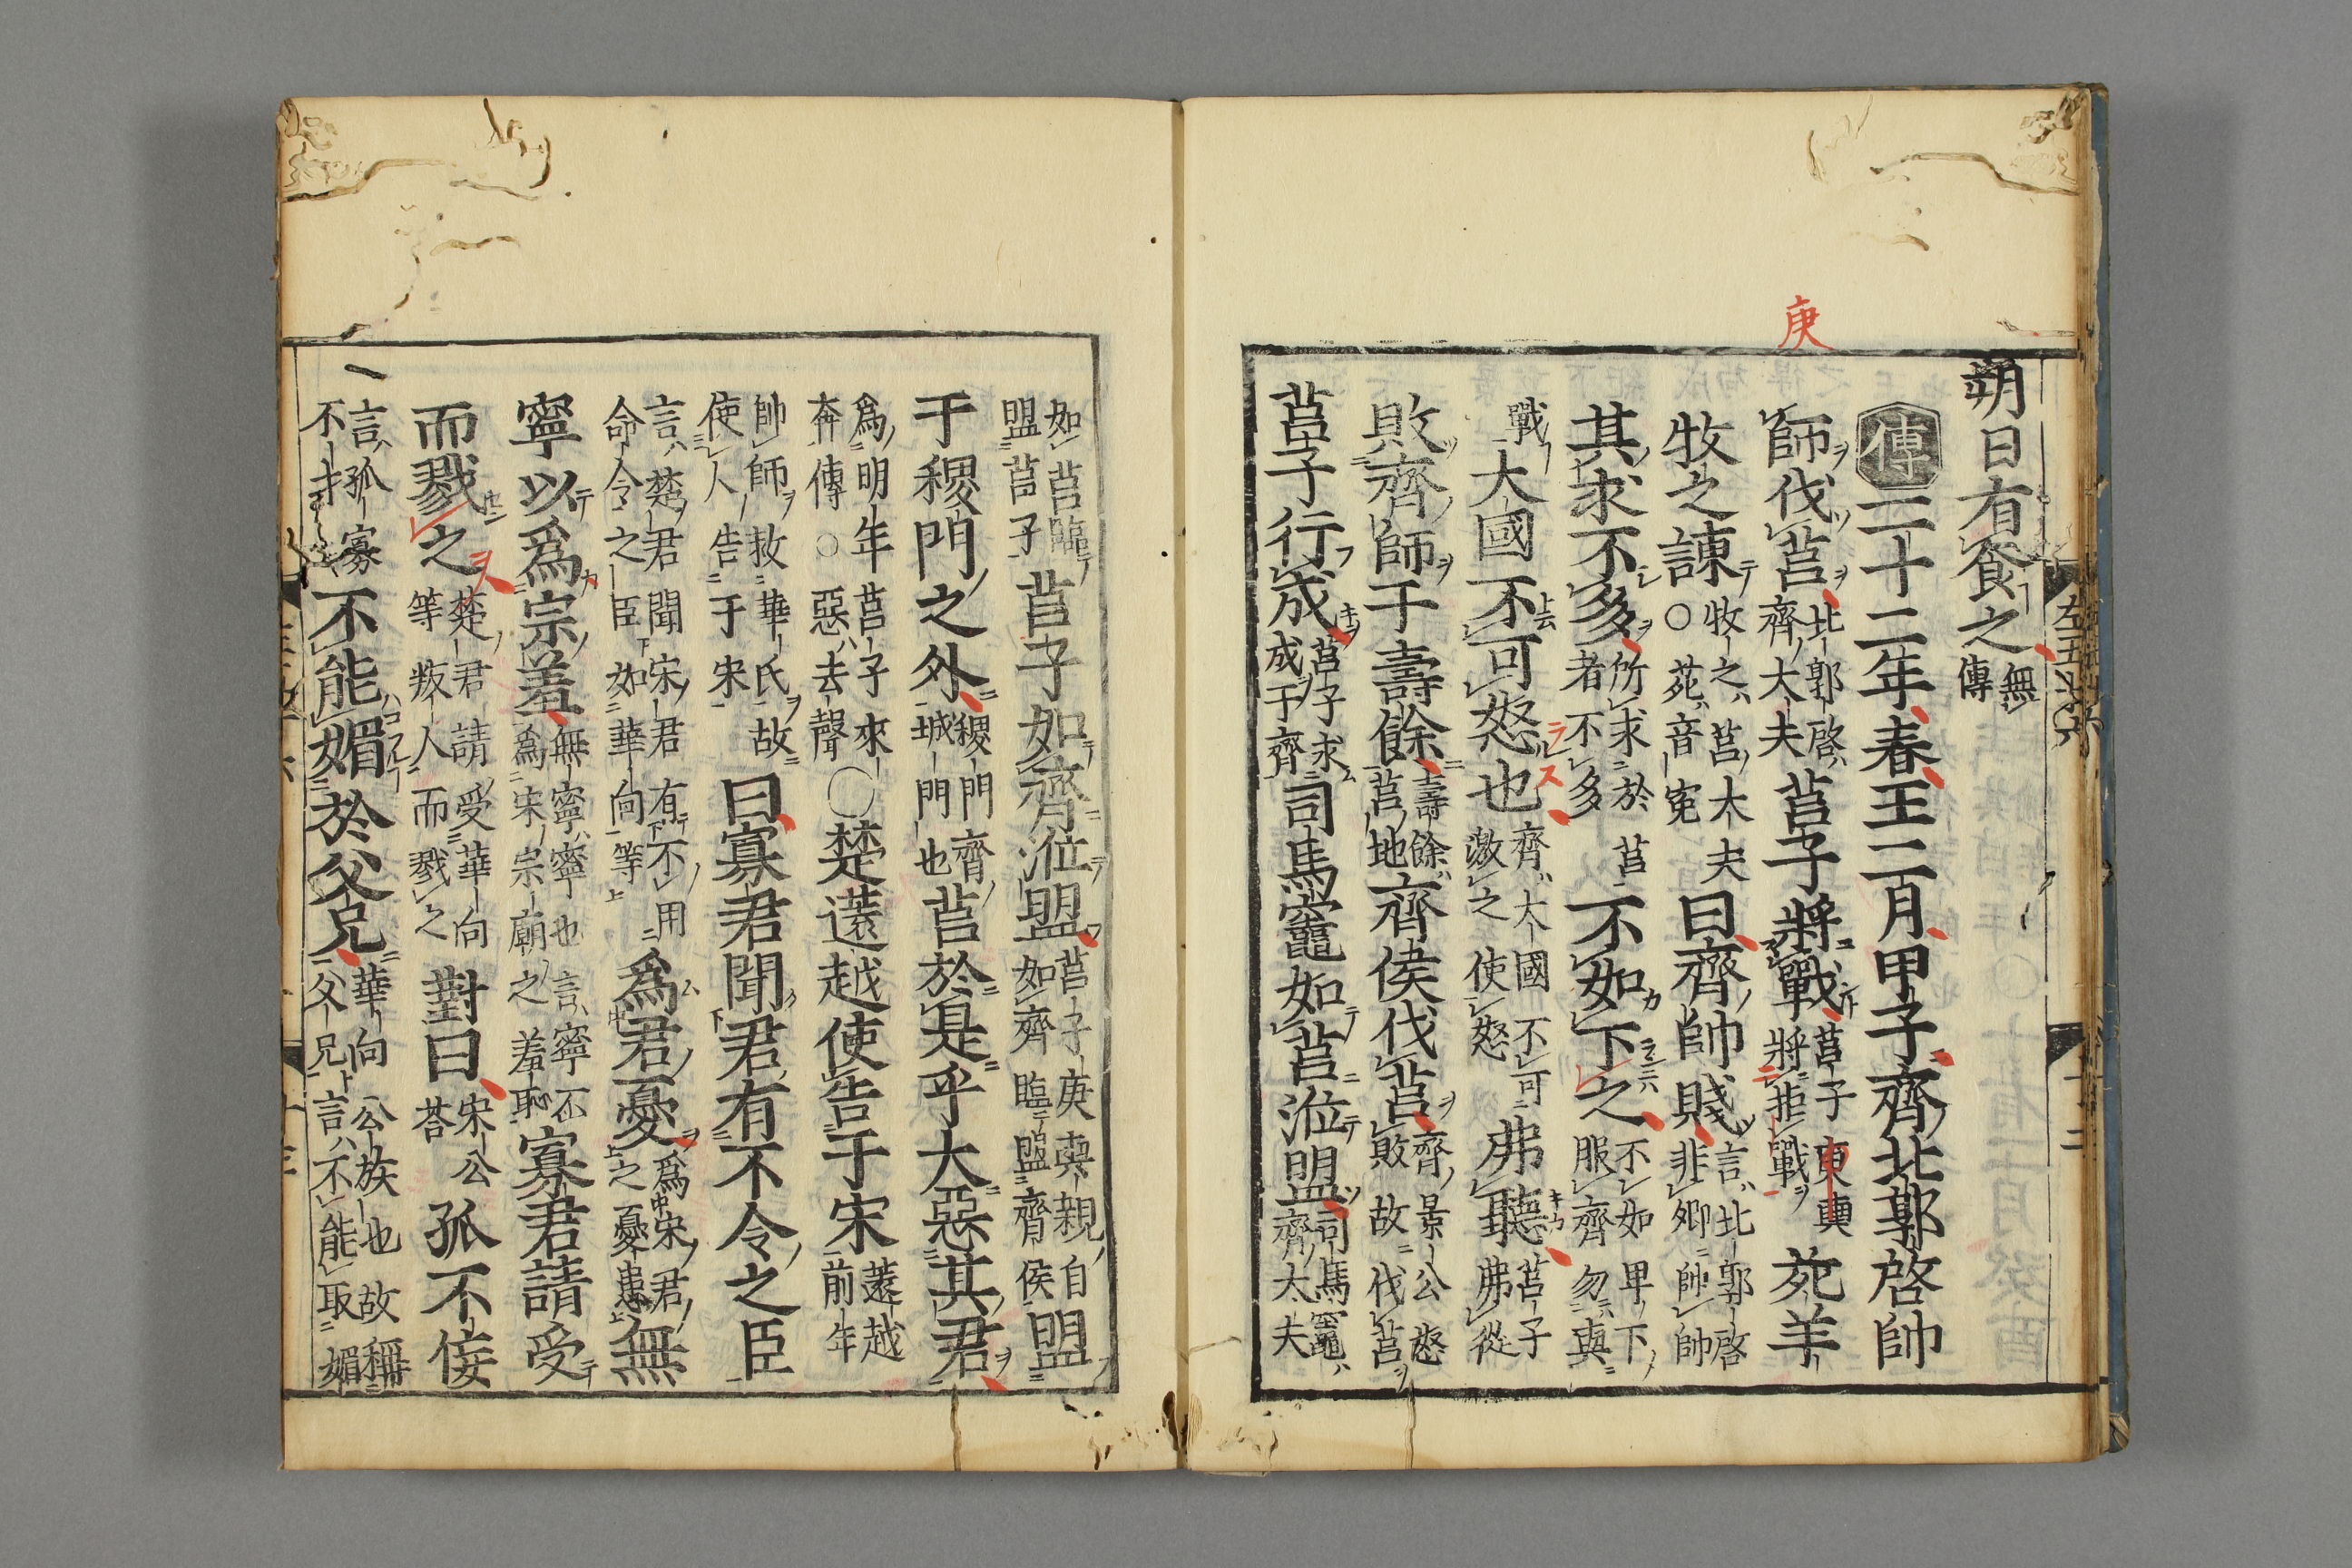 庚
朔日有食之無傳
傳二十二年春王二月甲子齊北郭啓帥
師伐莒北郭啓齊大夫莒子將戰莒子庚輿將拒戰苑羊
牧之諫牧之莒大夫○苑音寃曰齊帥賤言北郭啓非卿帥帥
其求不多所求於莒者不多不如下之不如卑下服齊勿與
戰大國不可怒也齊大國不可激之使怒弗聽莒子弗從
敗齊師于壽餘壽餘莒地齊侯伐莒齊景公怒敗故伐莒
莒子行成莒子求成于齊司馬竈如莒涖盟司馬竈齊大夫
如莒臨盟莒子莒子如齊涖盟莒子庚輿親自如齊臨盟齊侯盟
于稷門之外稷門齊城門也莒於是乎大惡其君
爲明年莒子來奔傳○惡去聲○楚薳越使告于宋薳越前年
帥師救華氏故使人告于宋曰寡君聞君有不令之臣
言楚君聞宋君有不用命令之臣如華向等爲君憂爲宋君之憂患無
寧以爲宗羞無寧寧也言寧不爲宋宗廟之羞恥寡君請受
而戮之楚君請受華向等叛人而戮之對曰宋公荅孤不佞
言孤寡不才不能媚於父兄華向公族也故稱父兄言不能取媚